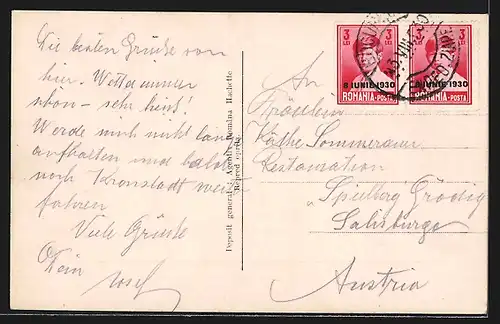 Die besten Grüsse von
hier. Wetter immer
schön – sehr heiss!
Werde mich nicht lang
aufhalten und bald
nach Kronstadt weiter
fahren
Viele Grüsse
Dein
Josef
Deposit general: Agentia Româna Hachette
Reprod oprita.
3 LEI 3 3 LEI 3
8 IUNIE 1930 8 IUNIE 1930
ROMANIA-POSTA ROMANIA-POSTA
An
Fräulein
Käthe Sommerauer
Restauration
Spielberg Grödig
Salzburg
Austria